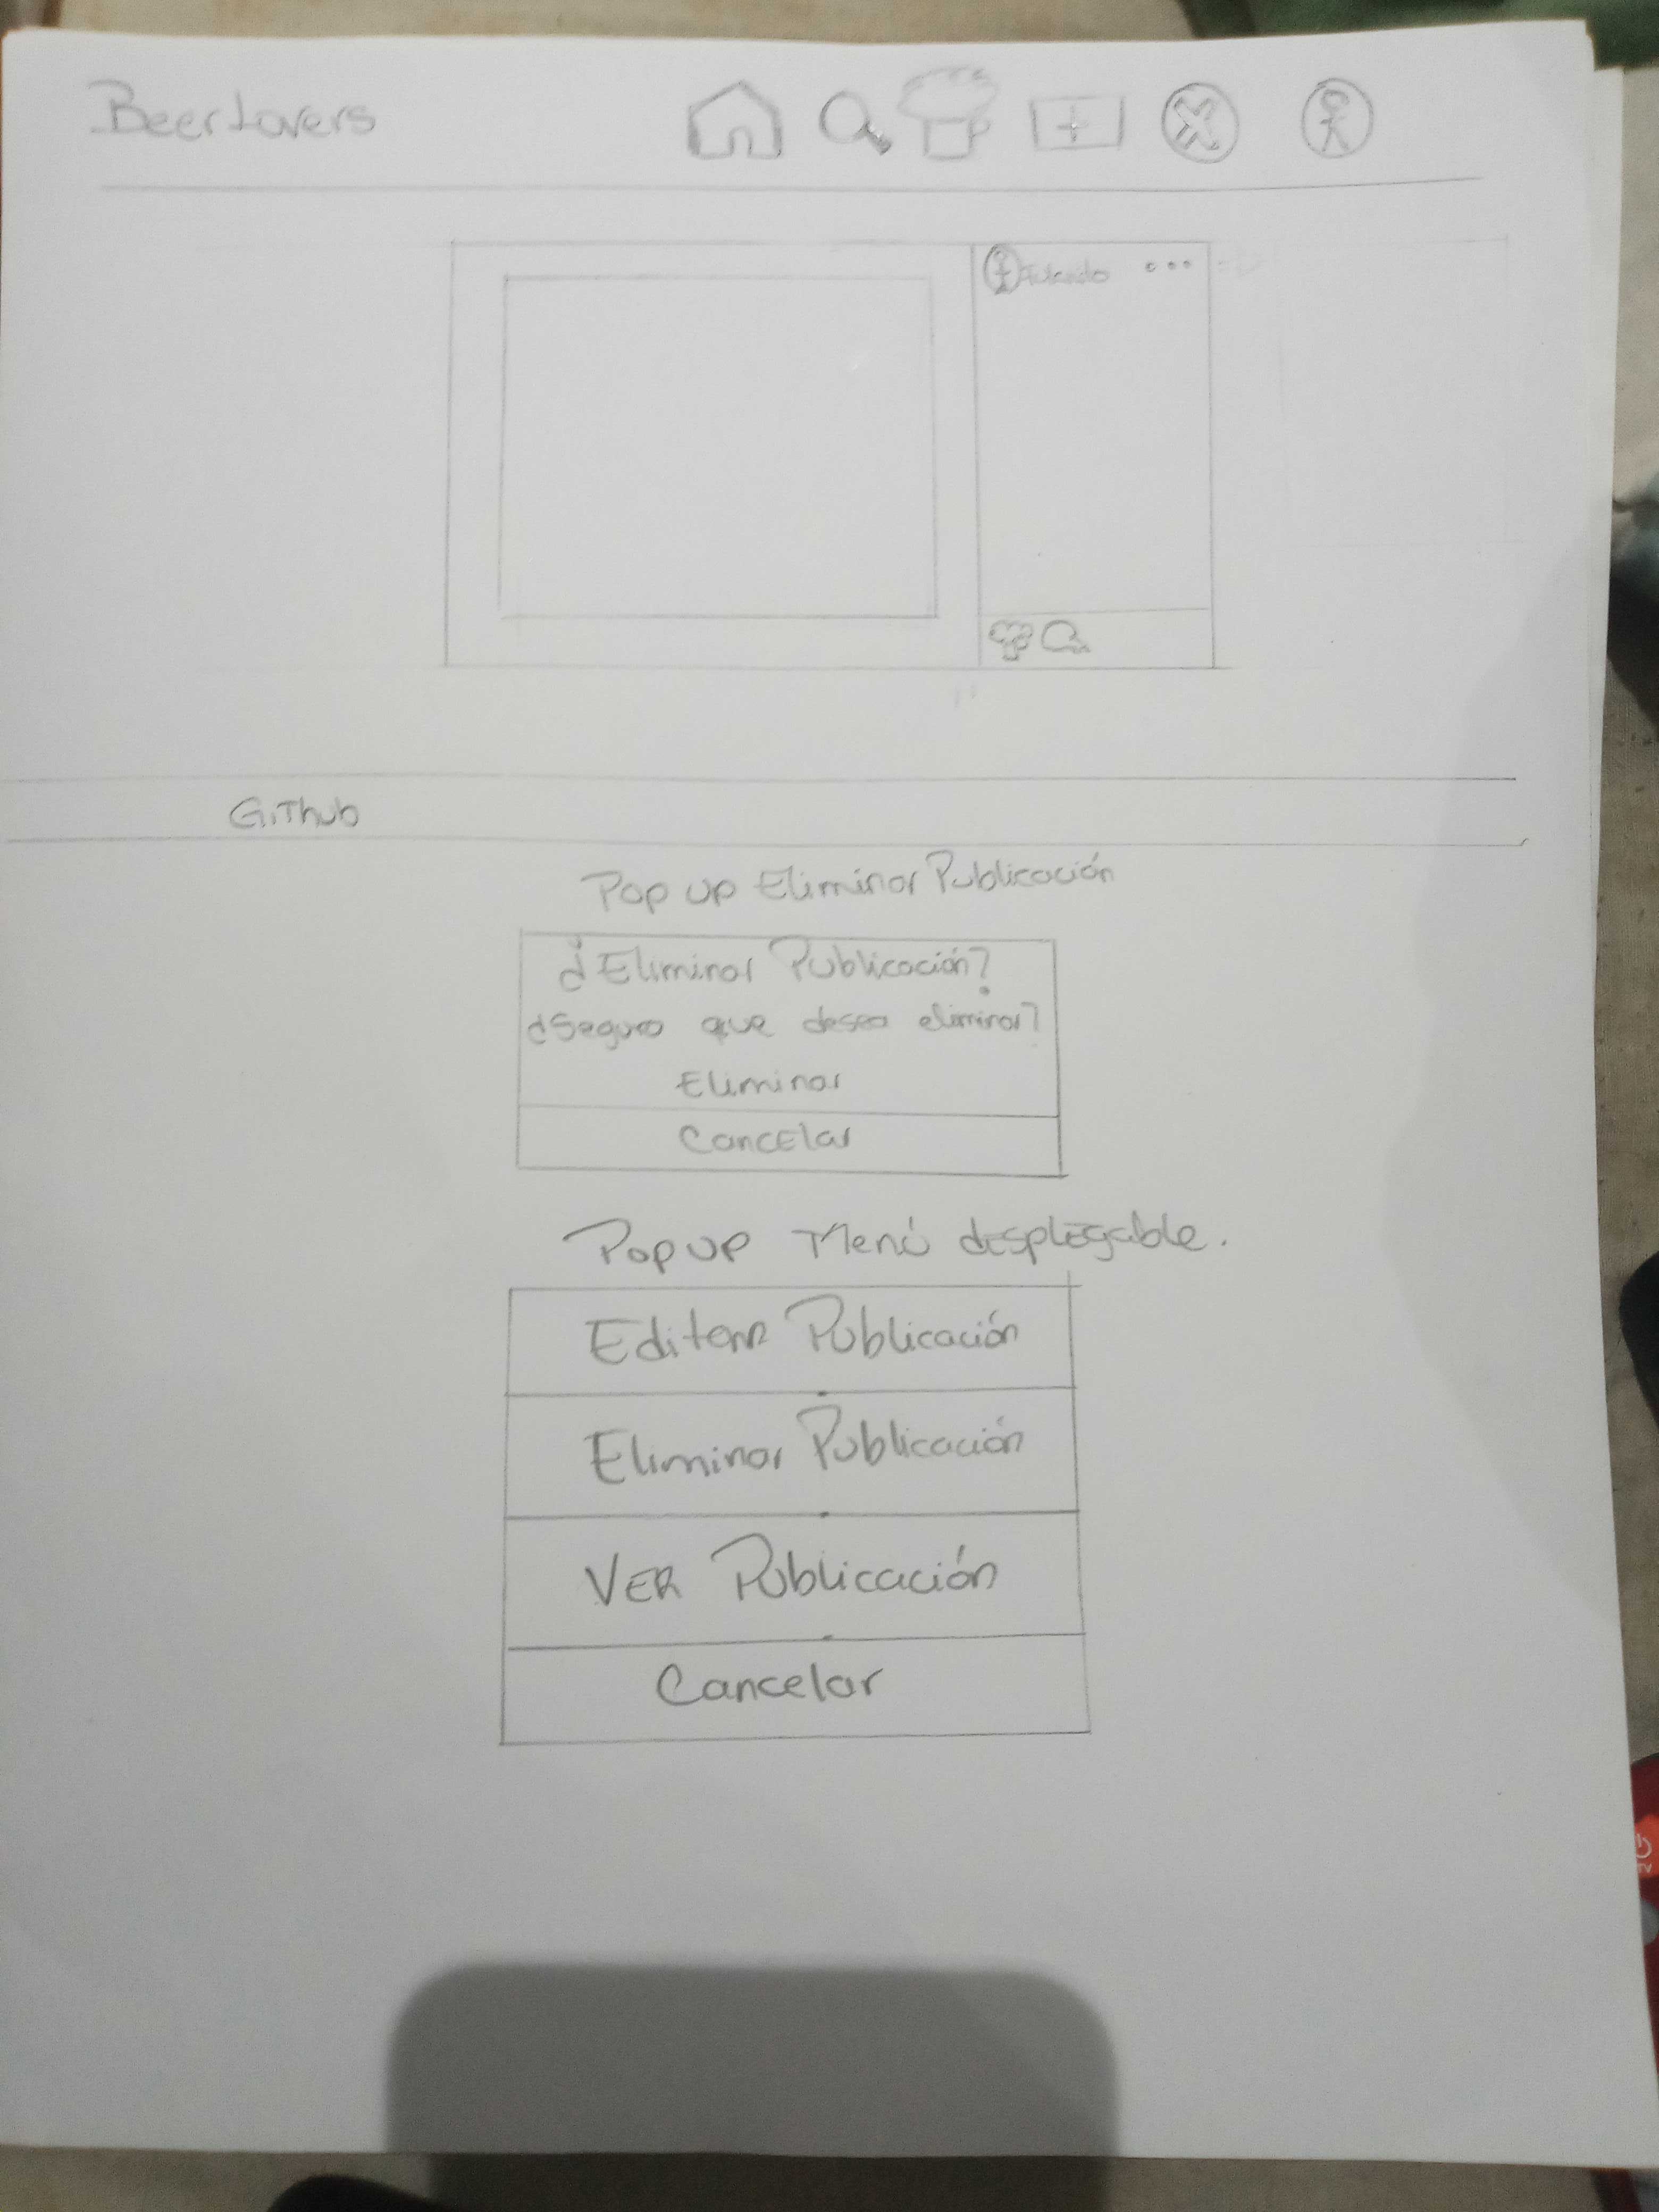 BeerLovers
Fulanito
GiThub
Pop up Eliminar Publicación
¿Eliminar Publicación?
¿Seguro que desea eliminar?
Eliminar
Cancelar
Pop up Menú desplegable.
Editar Publicación
Eliminar Publicación
VER Publicación
Cancelar
TV